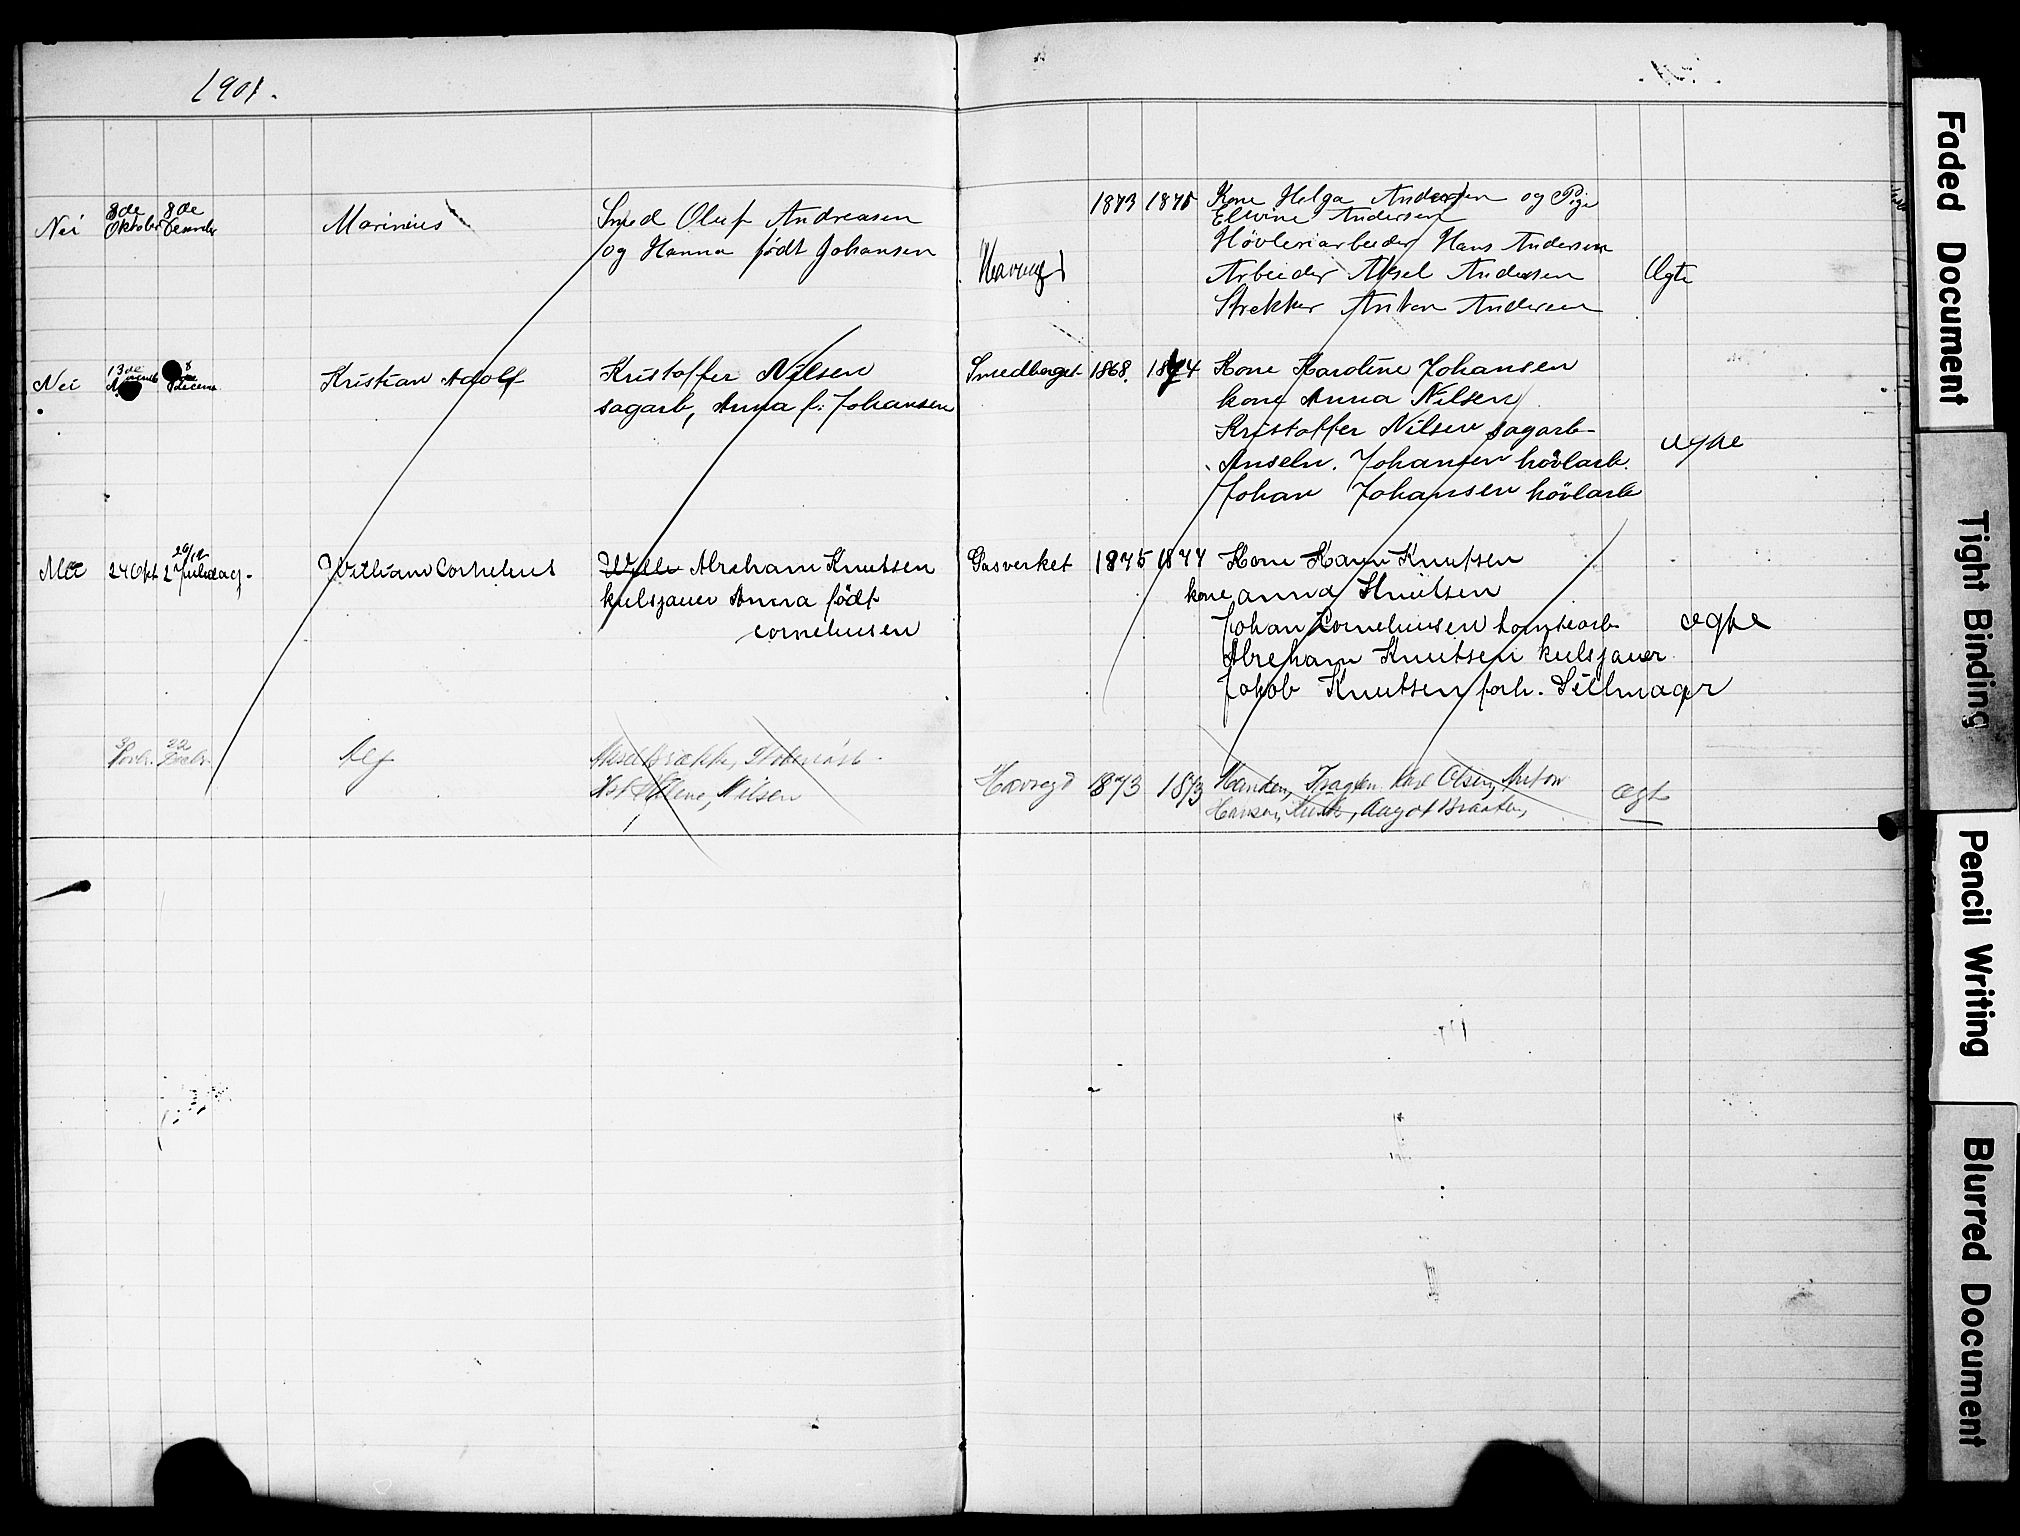 1901.
Nei 8de Oktober 8de Marinius Smed Oluf Andreasen
og Hanna født Johansen
1873 1875 Kone Helga Andersen og Pige
Elevine Andersen
Høvleriarbeider Hans Andersen
Arbeider Aksel Andersen Ægte
Strekker Anton Andersen
Nei 13de Kristian Adolf Kristoffer Nilsen
sagarb, Anna f: Johansen
Smedberget 1868. 1874 Kone Karoline Johansen
kone Anna Nilsen
Kristoffer Nilsen sagarb ægte
Anseln. Johansen høvlarb.
Johan Johansen høvlarb
Nei 24 Okt 29/12 2 Juledag William Cornelius Wille Abreham Knutsen
kulsjauer Anna født
Corneliusen
Gasverket 1875 1877 Kone Karen Knutsen
kone Anna Knutsen
Johan Cornelius­en tomtearb ægte
Abreham Knutsen kulsjauer
Jakob Knutsen forh. Seilmager
22 Alf
Nilsen
1873 1873 Olsen, Anton Ægt
Hansen, Aagot Braaten,
Faded Document
Tight Binding
Pencil Writing
Blurred Document